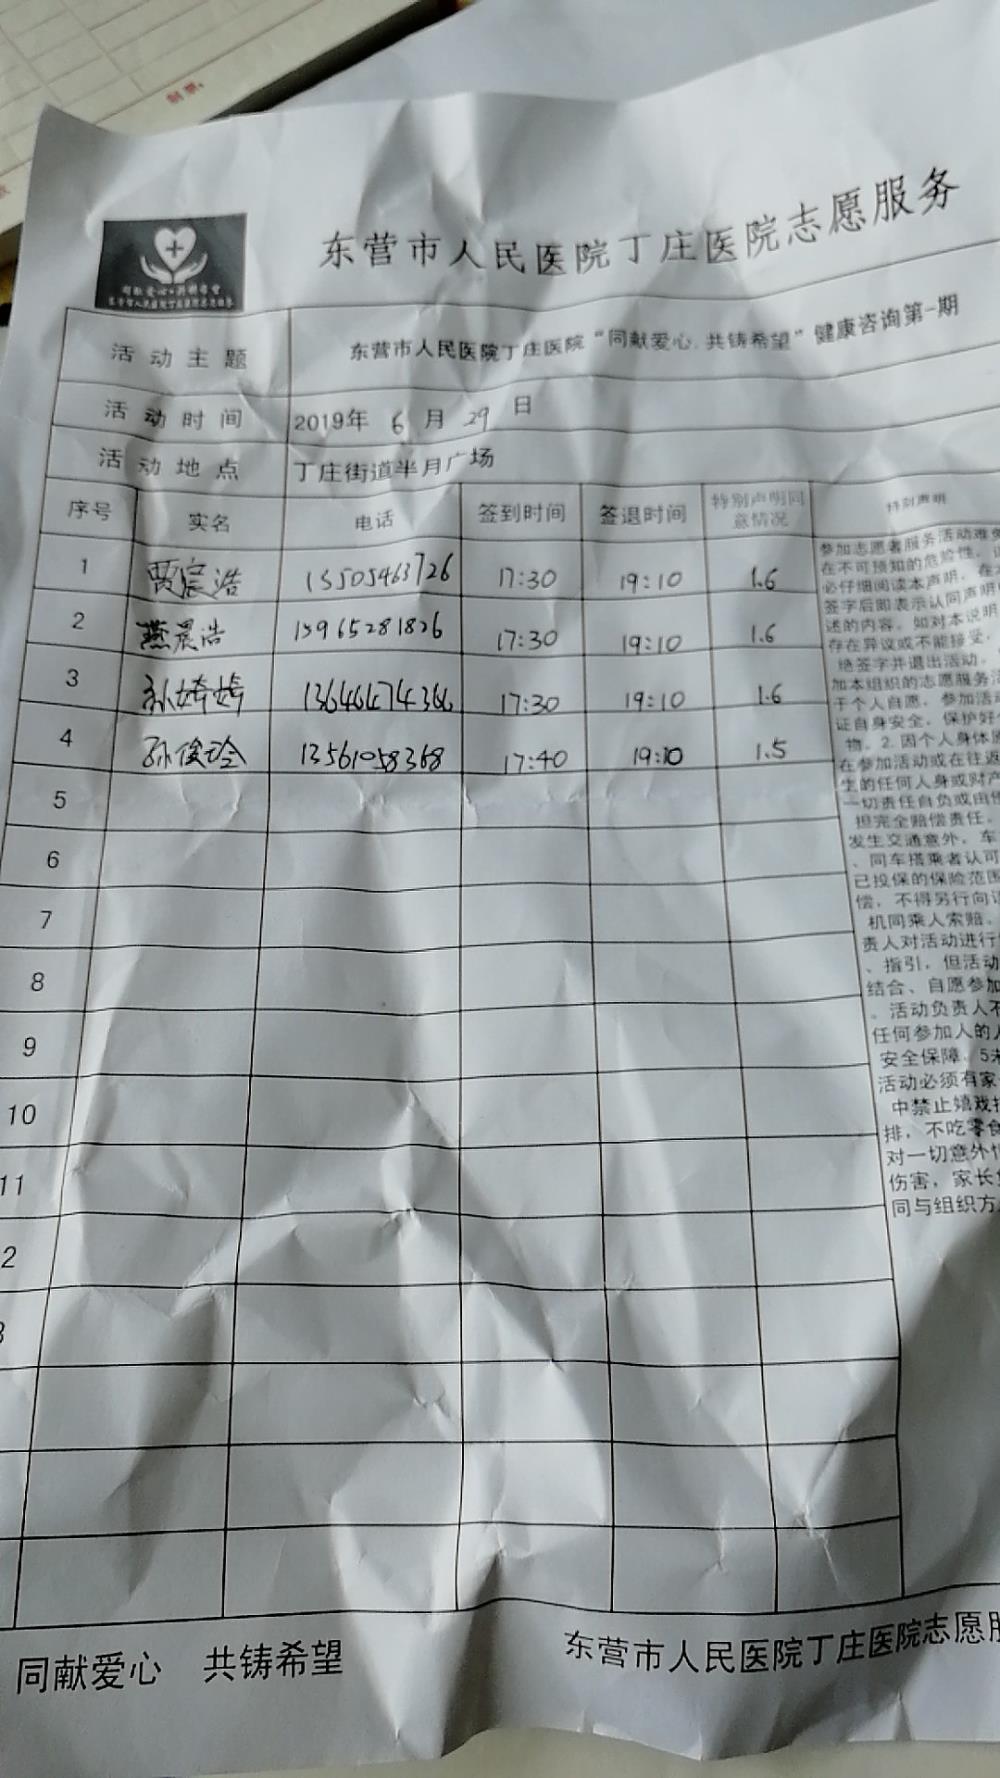 制帆
东营市人民医院丁庄医院志愿服务
同献爱心·共铸希望
活动主题 东营市人民医院丁庄医院“同献爱心.共铸希望”健康咨询第一期
活动时间 2019年 6 月 29 日
活动地点 丁庄街道半月广场
序号 实名 电话 签到时间 签退时间 特别声明同意情况 特别声明
1 贾宸浩 13505463726 17:30 19:10 1.6
2 燕晨浩 13965281826 17:30 19:10 1.6
3 17:30 19:10 1.6
4 13561058368 17:40 19:10 1.5
5
6
7
8
9
10
11
2
3
参加志愿者服务活动难免
在不可预知的危险性,
必仔细阅读本声明,在
签字后即表示认同声明
述的内容。如对本说明
存在异议或不能接受,
绝签字并退出活动。
加本组织的志愿服务活
于个人自愿,参加活
证自身安全,保护好
物。2.因个人身体
在参加活动或在往返
生的任何人身或财产
一切责任自负或由
担完全赔偿责任。
发生交通意外,车
、同车搭乘者认可
已投保的保险范围
偿,不得另行向
机同乘人索赔。
责人对活动进行
、指引,但活动
结合、自愿参加
。活动负责人不
任何参加人的人
安全保障。5未
活动必须有家
中禁止嬉戏打
排,不吃零食
对一切意外
伤害,家长
同与组织方
同献爱心 共铸希望
东营市人民医院丁庄医院志愿服